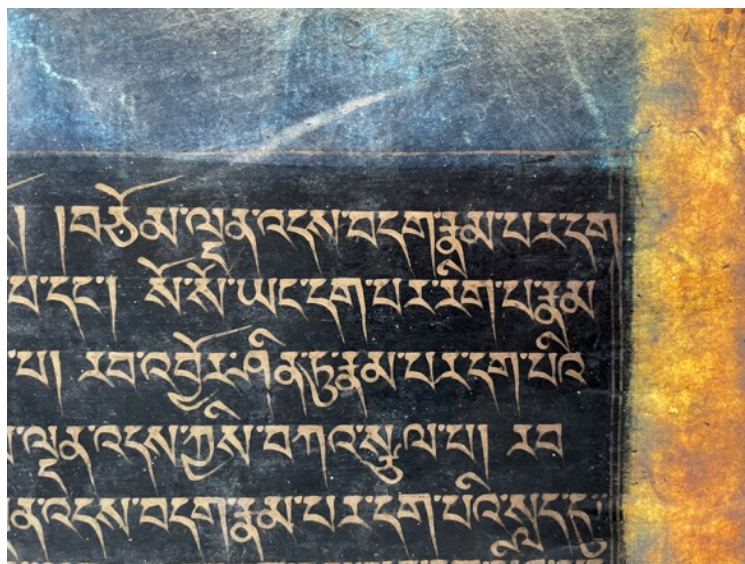 ། །བཅོམ་ལྡན་འདས་བདག་རྣམ་པར་དག
པ་དང་། སོ་སོ་ཡང་དག་པར་རིག་པ་རྣམ
པ། རབ་འབྱོར་ཤིན་ཏུ་རྣམ་པར་དག་པའི
ལྡན་འདས་ཀྱིས་བཀའ་སྩལ་པ། རབ
ན་འདས་བདག་རྣམ་པར་དག་པའི་སླད་དུ